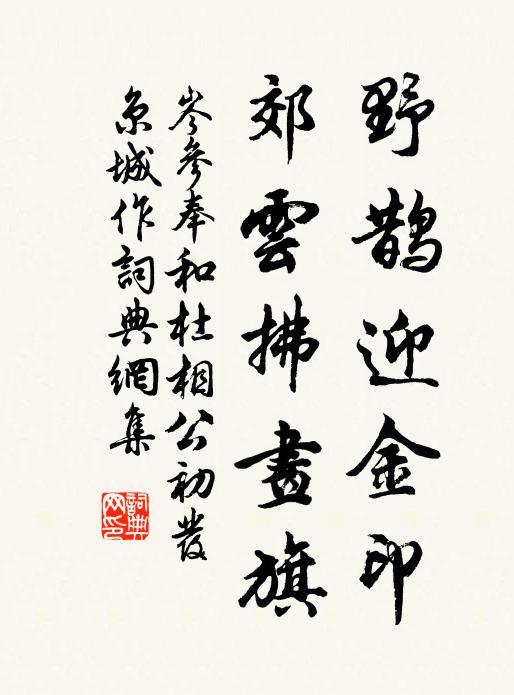 野鵲迎金印
郊雲拂畫旗
岑參奉和杜相公初發
京城作詞典網集
詞典
网印